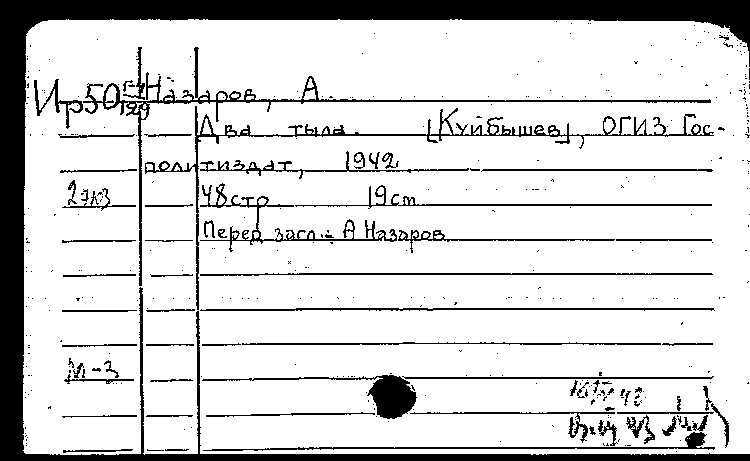 Ир50 Г-4/129 Назаров, А.
Два тыла. [Куйбышев], ОГИЗ Гос-
политиздат, 1942.
2 экз 48 стр 19 cm
Перед загл.: А Назаров
М-3